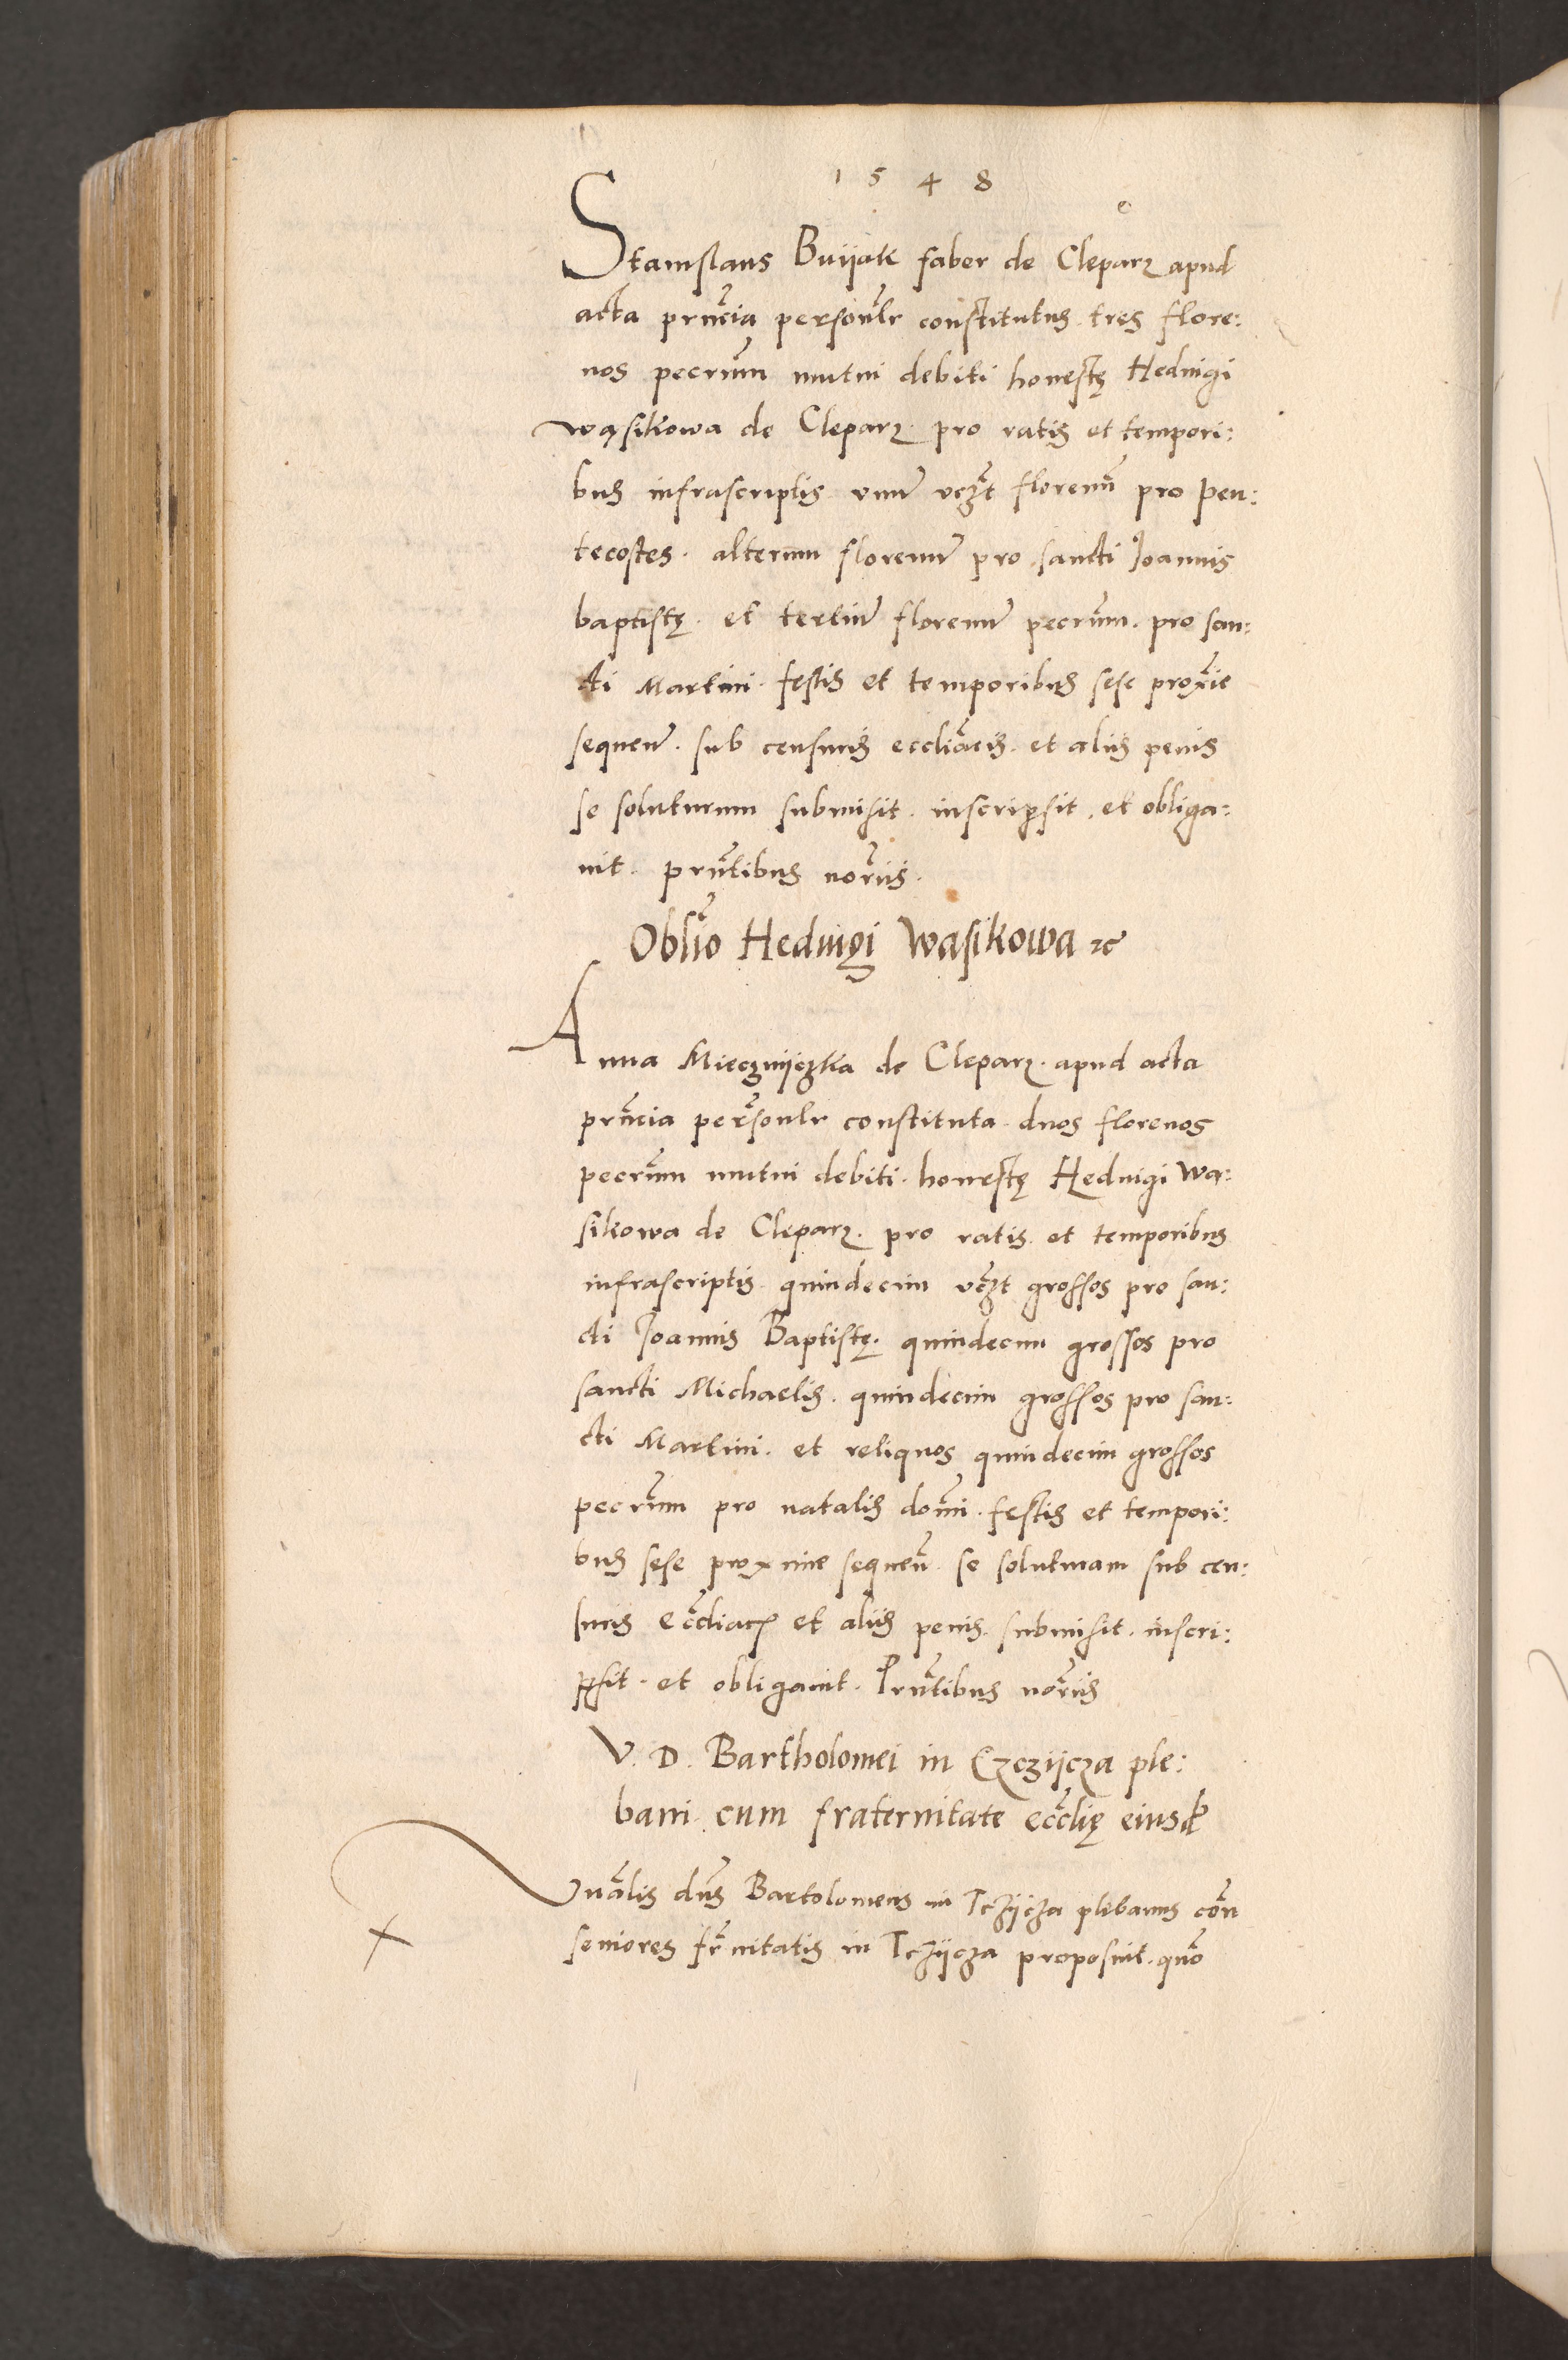 1548
Stanislaus Buijak faber de Cleparz apud
acta prn̄cia person̄lr constitutus tres flore:
nos pecrūm mutui debiti honestę Heduigi
Wąsikowa de Cleparz. pro ratis et tempori:
bus infrascriptis unū vcz̄t florenū pro Pen:
tecostes. alterum florenū pro sancti Joannis
baptistę. et tertiū florenū pecrūm. pro san:
cti Martini. festis et temporibus sese proxīe
sequen̄. sub censuris eccliācis. et aliis penis
se soluturum submisit. inscripsit. et obliga:
uit. prn̄tibus nor̄iis.
Oblīo Heduigi Wąsikowa etc
Anna Miecznijczka de Cleparz. apud acta
prn̄cia person̄lr constituta. duos florenos
pecrūm mutui debiti. honestę Heduigi Wą:
sikowa de Cleparz. pro ratis et temporibus
infrascriptis. quindecim vcz̄t grossos pro san:
cti Joannis Baptistę. quindecim grossos pro
sancti Michaelis. quindecim grossos pro san:
cti Martini. et reliquos quindecim grossos
pecrūm pro natalis domī. festis et tempori:
bus sese proxime sequen̄. se soluturam sub cen:
suris ecc̄liacis et aliis penis. submisit. inscri:
psit. et obligauit. Prn̄tibus nor̄iis
V. D. Bartholomei in Czczijcza ple:
bani. cum fraternitate ecc̄lię eiusd
Vnālis dn̄s Bartolomeus in Tczijcza plebanus con̄
seniores fr̄nitatis in Tczijcza proposuit. quō